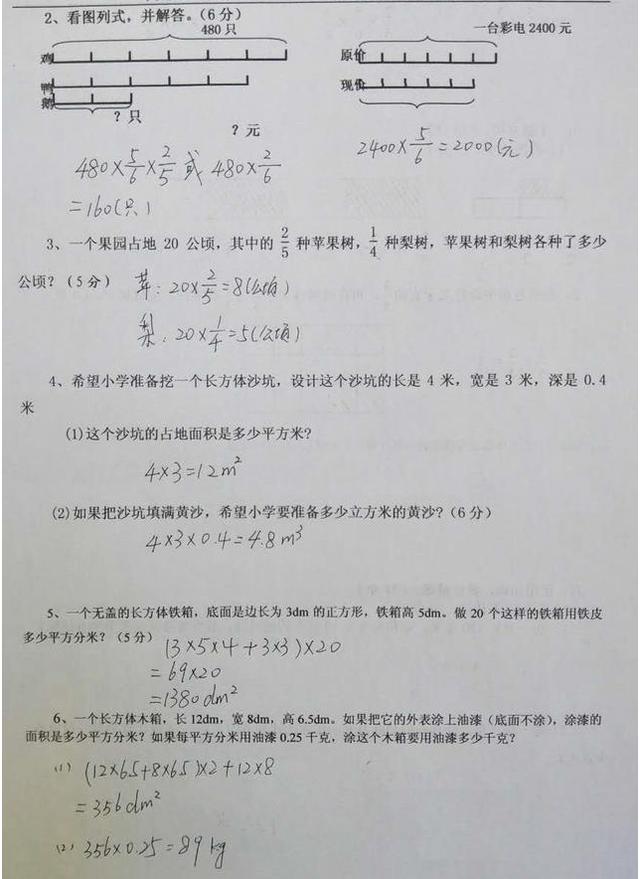 2、看图列式，并解答。（6 分）
480 只
一台彩电 2400 元
鸡
原价
鸭
现价
鹅
？只
？元
480×5/6×2/5 或 480×2/6
=160(只)
2400×5/6=2000(元)
3、一个果园占地 20 公顷，其中的 2/5 种苹果树，1/4 种梨树，苹果树和梨树各种了多少
公顷？（5 分）
苹：20×2/5=8(公顷)
梨：20×1/4=5(公顷)
4、希望小学准备挖一个长方体沙坑，设计这个沙坑的长是 4 米，宽是 3 米，深是 0.4
米
(1)这个沙坑的占地面积是多少平方米?
4×3=12m²
(2)如果把沙坑填满黄沙，希望小学要准备多少立方米的黄沙?（6 分）
4×3×0.4=4.8m³
5、一个无盖的长方体铁箱，底面是边长为 3dm 的正方形，铁箱高 5dm。做 20 个这样的铁箱用铁皮
多少平方分米？（5 分）
(3×5×4+3×3)×20
=69×20
=1380dm²
6、一个长方体木箱，长 12dm，宽 8dm，高 6.5dm。如果把它的外表涂上油漆（底面不涂），涂漆的
面积是多少平方分米？如果每平方分米用油漆 0.25 千克，涂这个木箱要用油漆多少千克？
(1) (12×6.5+8×6.5)×2+12×8
=356dm²
(2) 356×0.25=89kg